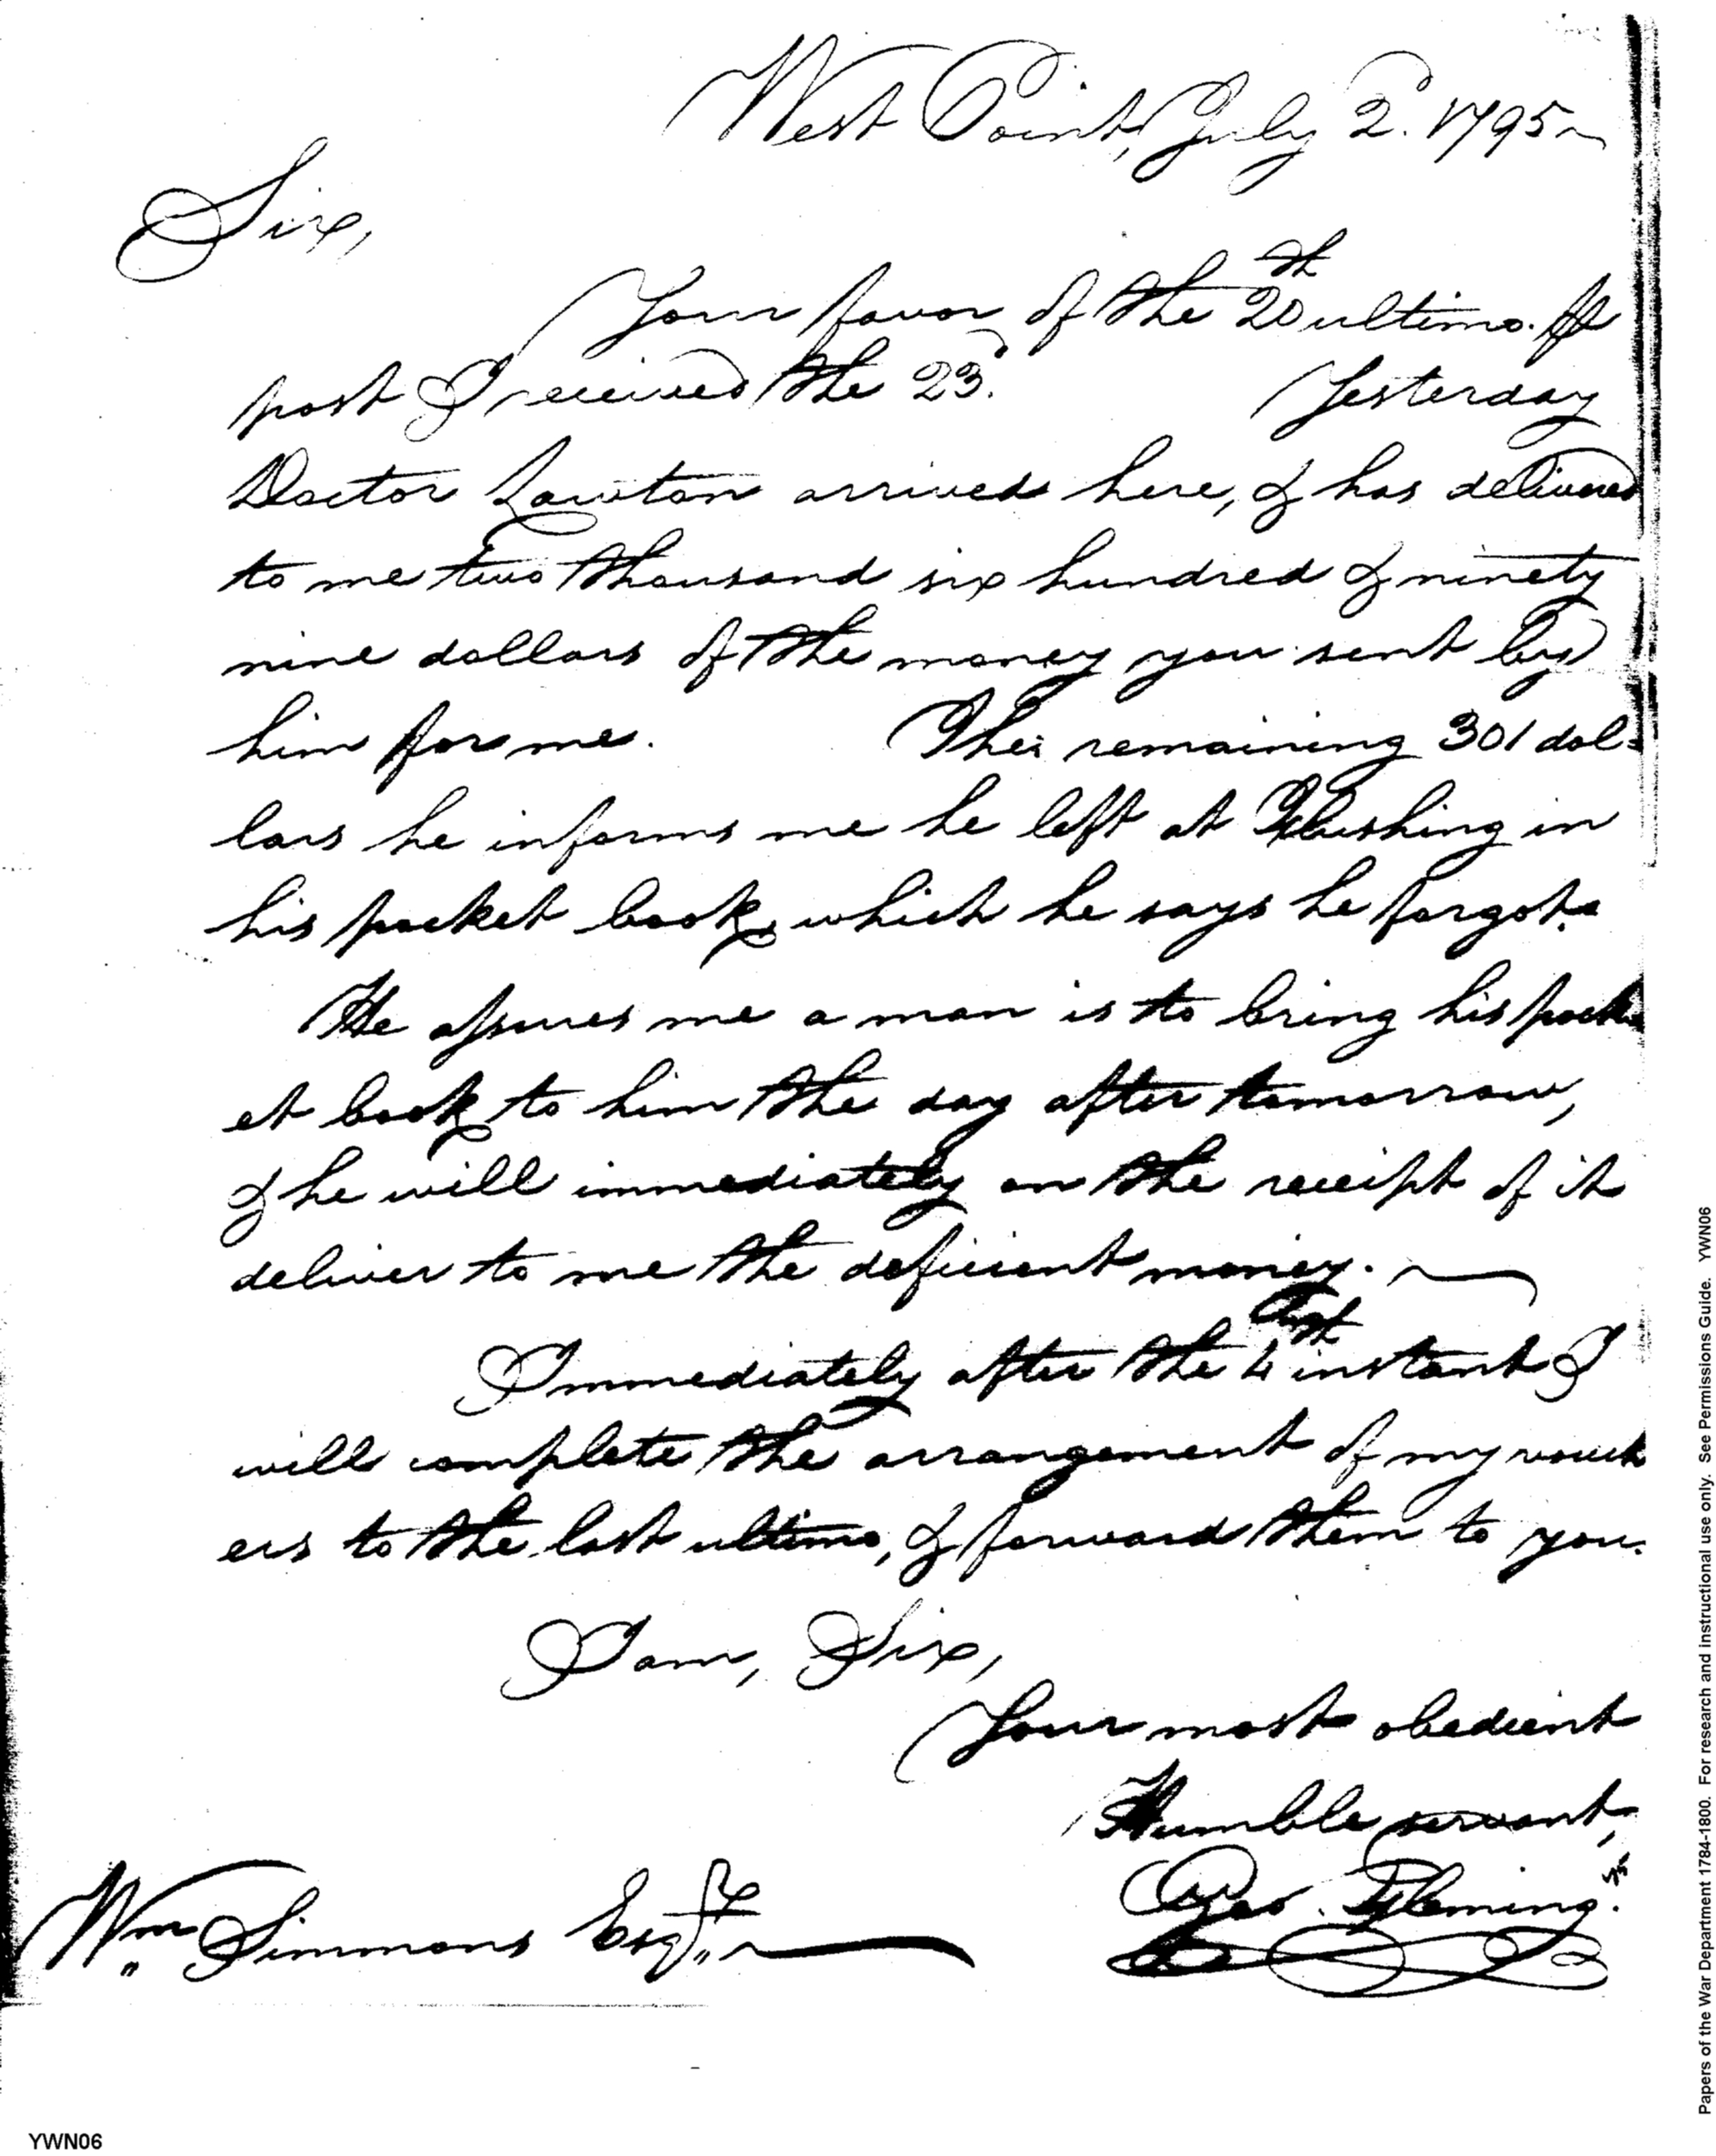 West Point, July 2d. 1795
Sir,
Your favor of the 20th ultimo. ⅌
post I received the 23d. Yesterday
Doctor Lawton arrived here, & has delivered
to me two thousand six hundred & ninety
nine dollars of the money you sent by
him for me. The remaining 301 dol=
lars he informs me he left at Flushing in
his pocket book, which he says he forgot.
He assures me a man is to bring his pock
et book to him the day after tomorrow,
& he will immediately on the receipt of it
deliver to me the deficient money.
Immediately after the 4th instant I
will complete the arrangement of my vouch
ers to the last ultimo, & forward them to you.
I am, Sir,
Your most obedient
Humble servant,
Geo. Fleming.
Wm Simmons Esqr
Papers of the War Department 1784-1800. For research and instructional use only. See Permissions Guide. YWN06
YWN06